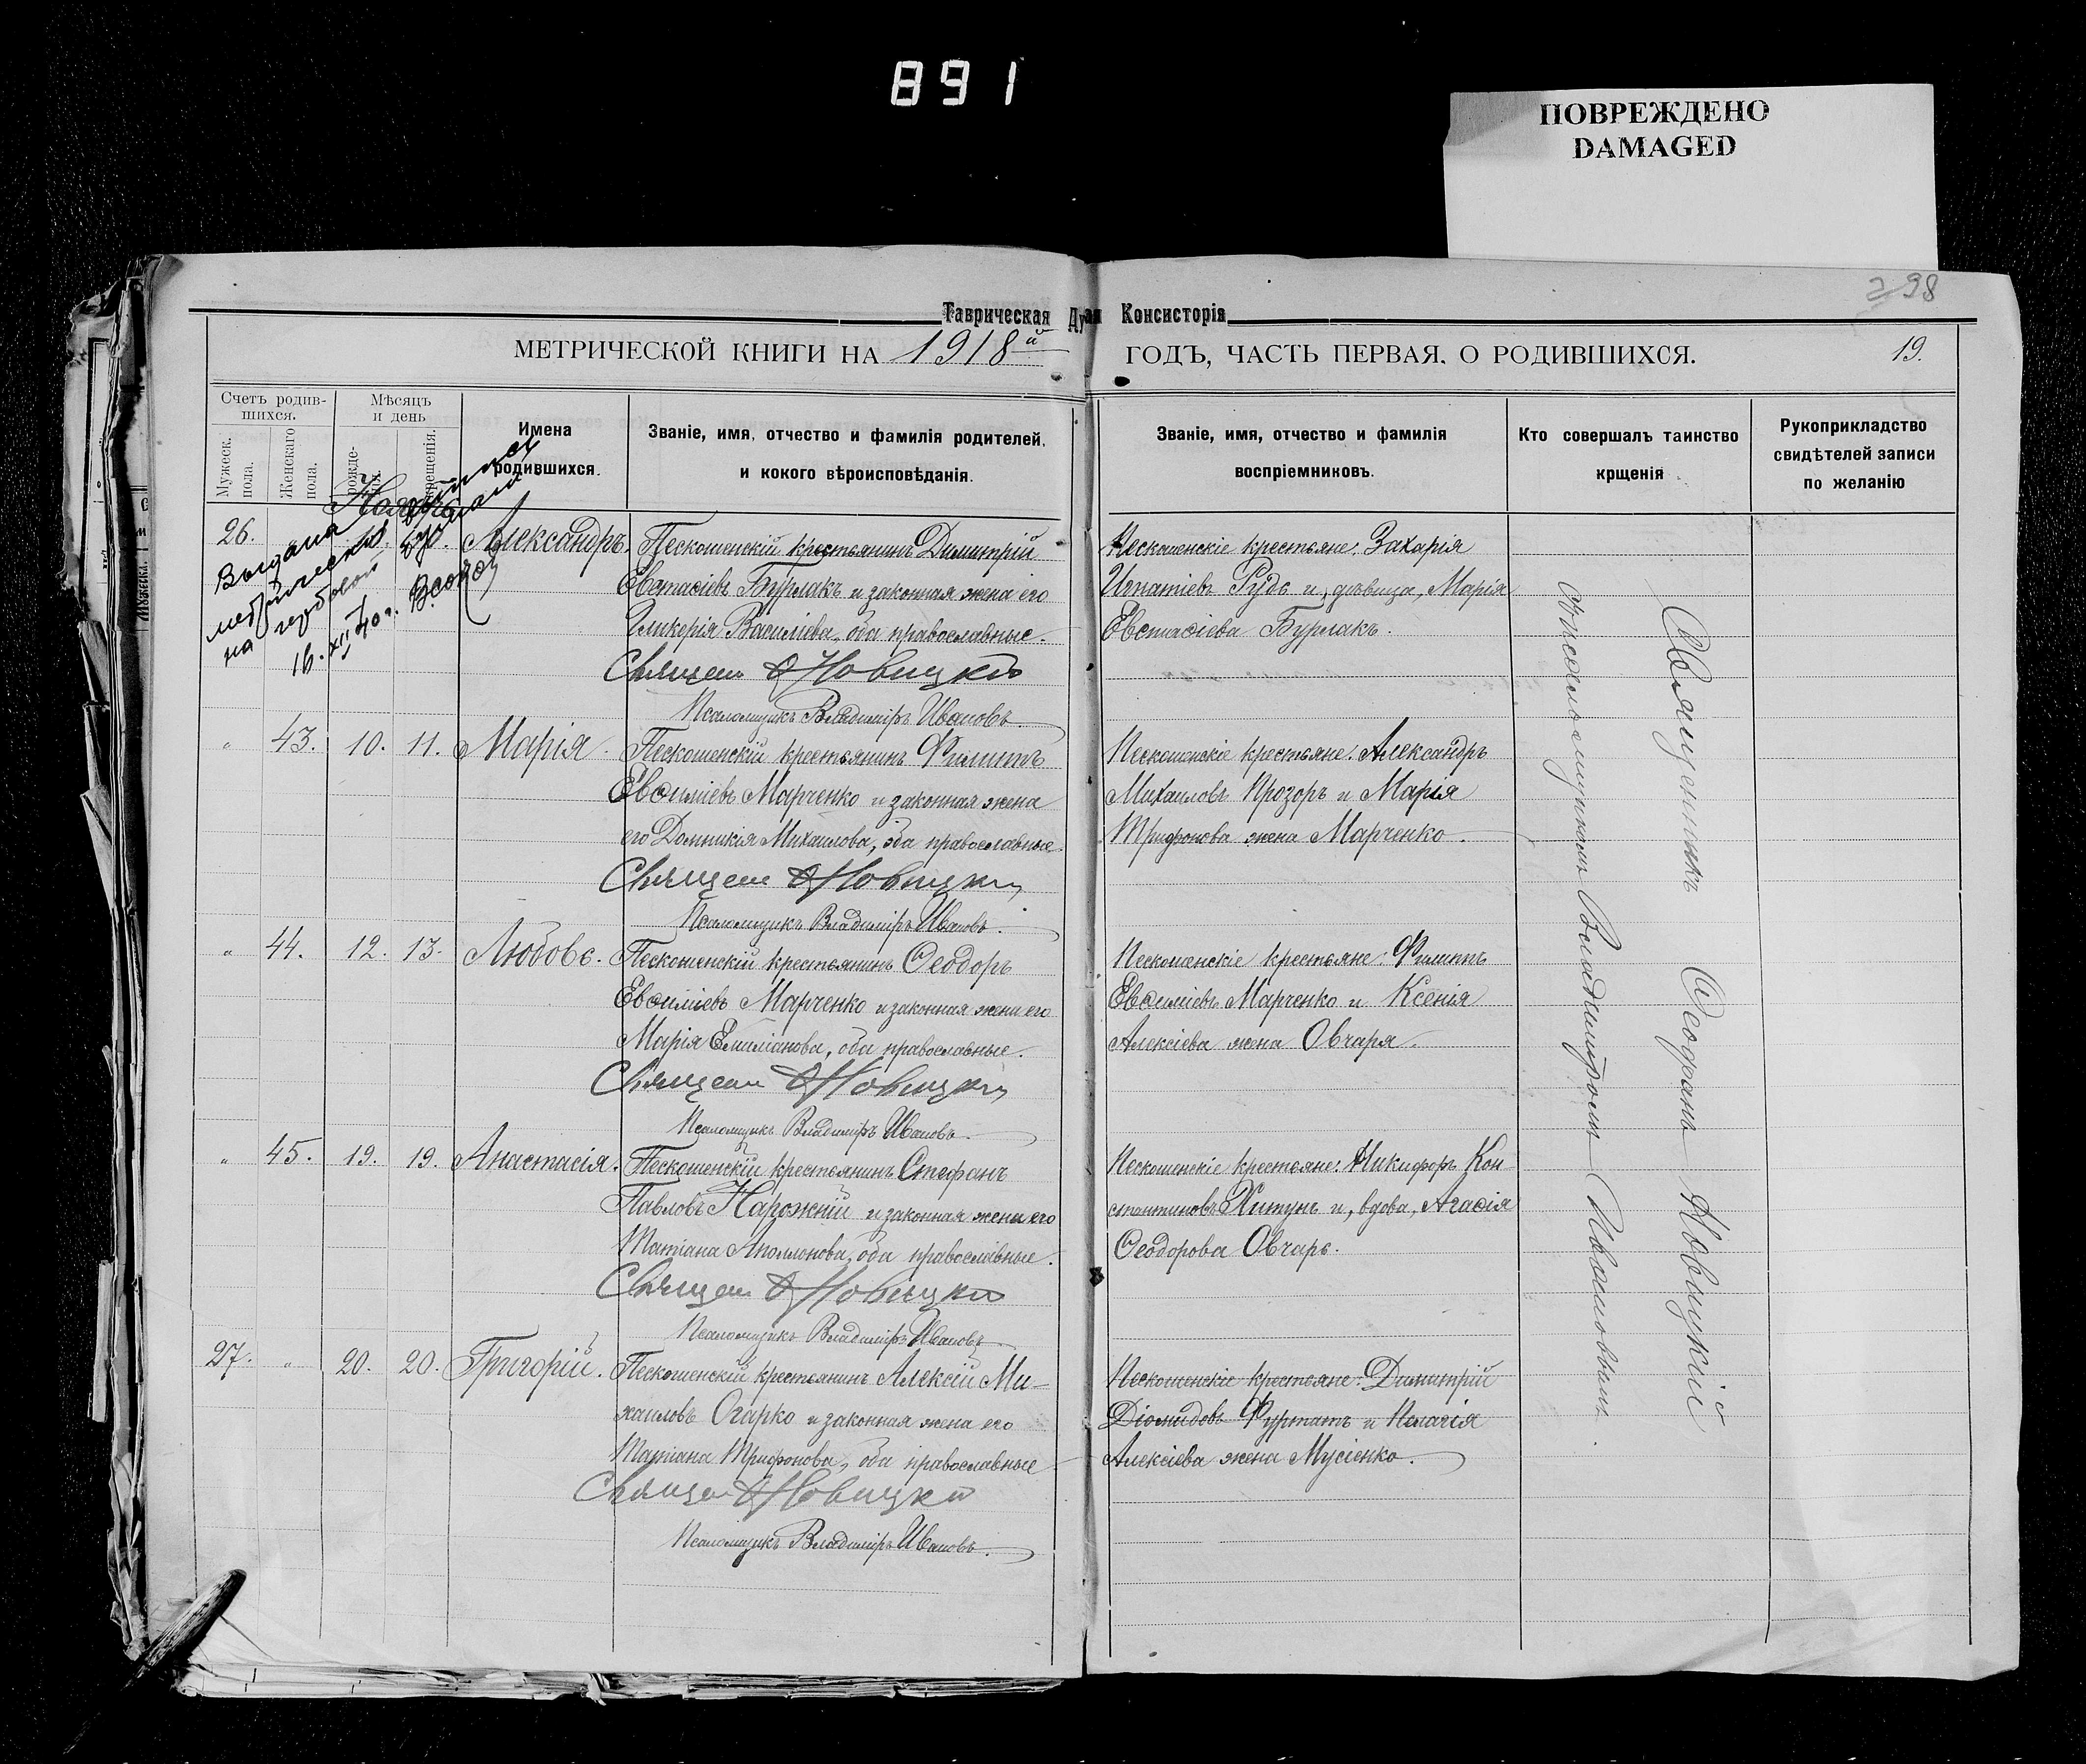 891
ПОВРЕЖДЕНО
DAMAGED
298
Таврическая Ду ая Консисторія
МЕТРИЧЕСКОЙ КНИГИ НА 1918й ГОДЪ, ЧАСТЬ ПЕРВАЯ. О РОДИВШИХСЯ.
19.
Счетъ родив-
шихся.
Мужеск.
пола.
Женскаго
пола.
Мѣсяцъ
и день
рожде-
нія.
крещенія.
Имена
родившихся.
Званіе, имя, отчество и фамилія родителей,
и кокого вѣроисповѣданія.
Званіе, имя, отчество и фамилія
воспріемниковъ.
Кто совершалъ таинство
крщенія
Рукоприкладство
свидѣтелей записи
по желанію
Выдана
на гербовой
16. XII 40 г.
26.
Александръ.
Пескошенскій крестьянинъ Димитрій
Евстаѳіевъ Бурлакъ и законная жена его
Гликерія Василіева, оба православные.
Священ Ѳ Новицкій
Псаломщикъ Владиміръ Ивановъ.
Пескошенскіе крестьяне: Захарія
Игнатіевъ Рудь и, дѣвица, Марія
Евстаѳіева Бурлакъ.
" 43. 10. 11. Марія.
Пескошенскій крестьянинъ Филиппъ
Евѳиміевъ Марченко и законная жена
его Домникія Михаилова, оба православные.
Священ Ѳ Новицкій
Псаломщикъ Владиміръ Ивановъ.
Пескошенскіе крестьяне: Александръ
Михаиловъ Прозоръ и Марія
Трифонова жена Марченко.
" 44. 12. 13. Любовь.
Пескошенскій крестьянинъ Ѳеодоръ
Евѳиміевъ Марченко и законная жена его
Марія Емиліанова, оба православные.
Священ Ѳ Новицкій
Псаломщикъ Владиміръ Ивановъ.
Пескошенскіе крестьяне: Филиппъ
Евѳиміевъ Марченко и Ксенія
Алексіева жена Овчаря.
" 45. 19. 19. Анастасія.
Пескошенскій крестьянинъ Стефанъ
Павловъ Нарожній и законная жена его
Татіана Аполлонова, оба православные.
Священ Ѳ Новицкій
Псаломщикъ Владиміръ Ивановъ.
Пескошенскіе крестьяне: Никифоръ Кон-
стантиновъ Хитунъ и, вдова, Агаѳія
Ѳеодорова Овчарь.
27. " 20. 20. Григорій.
Пескошенскій крестьянинъ Алексій Ми-
хаиловъ Огарко и законная жена его
Татіана Трифонова, оба православные
Священ Ѳ Новицкій
Псаломщикъ Владиміръ Ивановъ.
Пескошенскіе крестьяне: Димитрій
Діомидовъ Фурматъ и Пелагія
Алексіева жена Мусіенко.
Священникъ Ѳеофанъ Новицкій
съ псаломщикомъ Владиміромъ Ивановымъ.